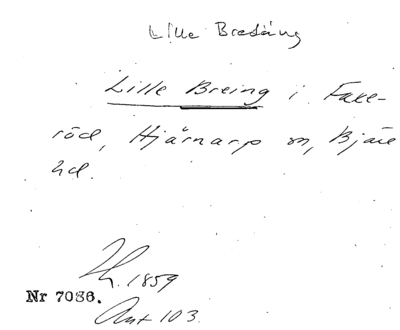 Lille Bredäng
Lille Breing i Faxe-
röd, Hjärnarp sn, Bjäre
hd.
Lh. 1859
Nr 7086.
Ant 103.